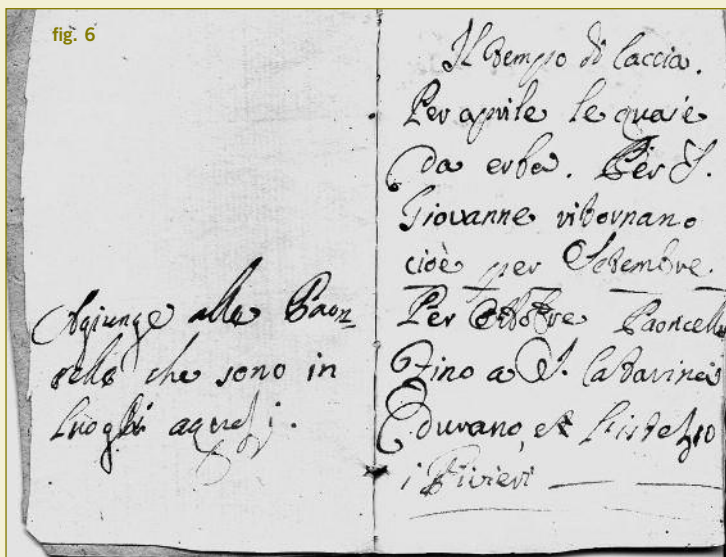 fig. 6
Agiunge alle Paon=
celle che sono in
luoghi aquosi.
Il tempo di Caccia.
Per aprile le quaie
da erba. Per S.
Giovanne ritornano
cioè per Setembre.
Per Ottobre Paoncelle
Fino a S. Cattarina
durano, et
i Pivieri